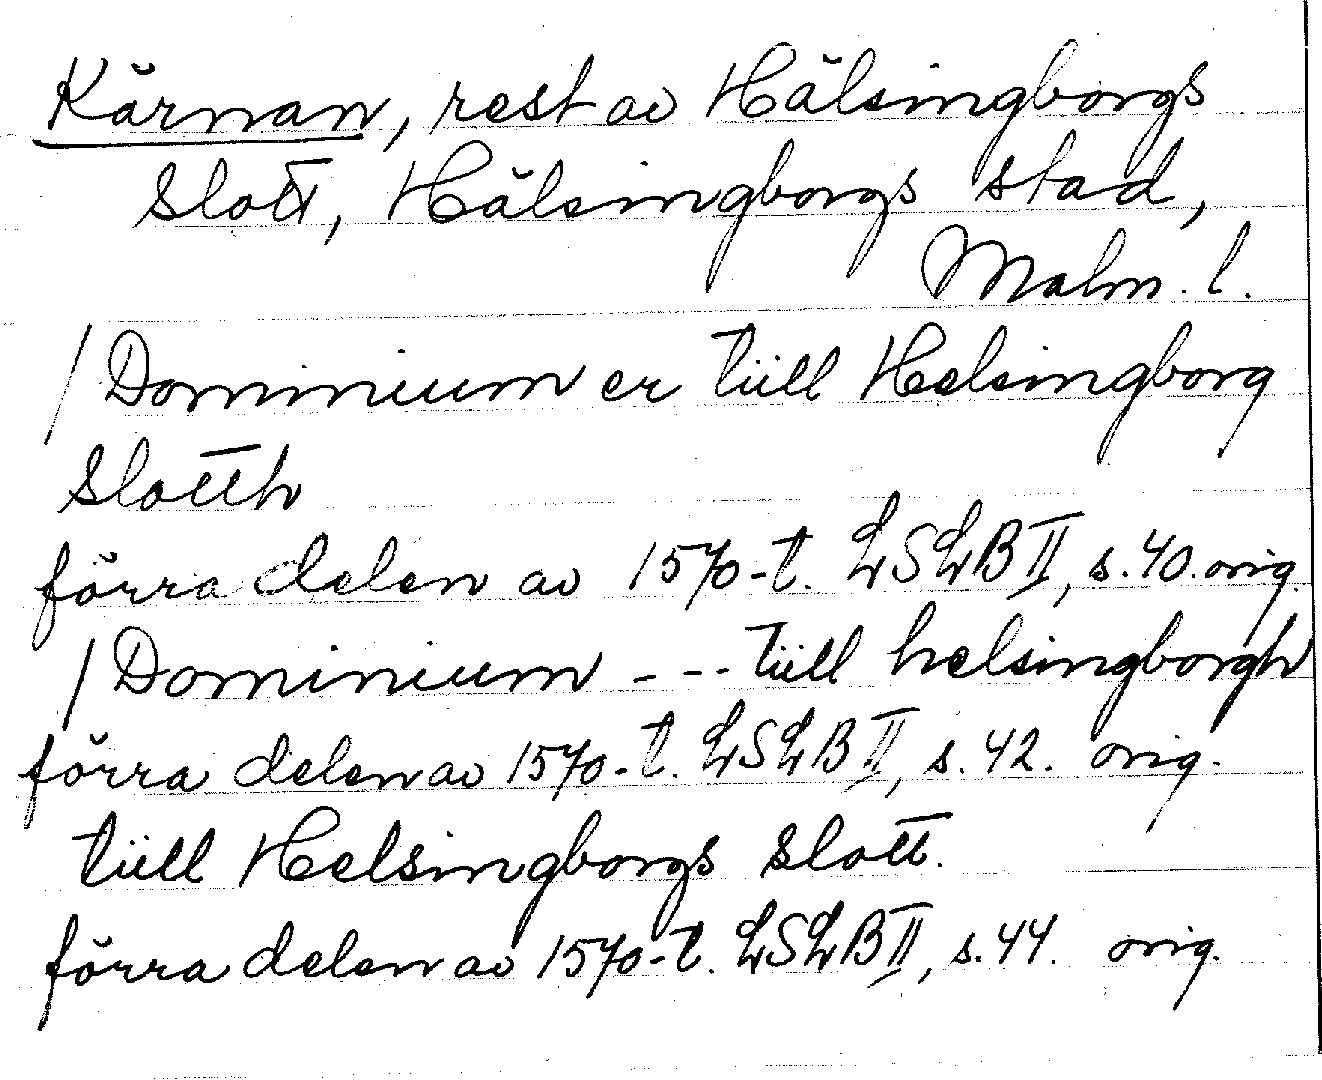 Kärnan, rest av Hälsingborgs
slott, Hälsingborgs stad,
Malm. l.
/Dominium er tiill Helsingborg
slotth
förra delen av 1570-t. LSLB II, s. 40. orig.
/Dominium --- tiill helsingborgh
förra delen av 1570-t. LSLB II, s. 42. orig.
tiill Helsingborgs slott.
förra delen av 1570-t. LSLB II, s. 44. orig.